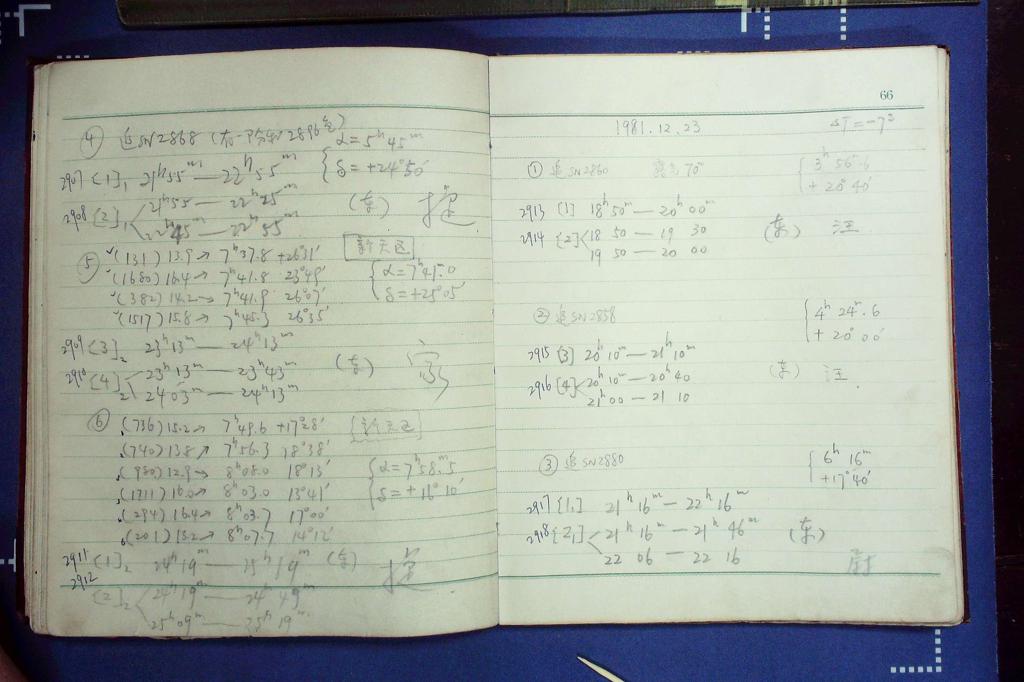 ④ 追SN2868
α=5ʰ45ᵐ
δ=+24°50′
2907 [1]₁ 21ʰ55ᵐ — 22ʰ55ᵐ
2908 [2]₁ 21ʰ55 — 22ʰ25ᵐ (东)
22ʰ45ᵐ — 22ʰ55ᵐ
⑤ (131) 13.9 → 7ʰ37.8 +26°31′ 新天区
(1680) 16.4 → 7ʰ41.8 23°49′ α=7ʰ41ᵐ.0
(382) 14.2 → 7ʰ41.9 26°07′ δ=+25°05′
(1517) 15.8 → 7ʰ45.3 26°35′
2909 [3]₂ 23ʰ13ᵐ — 24ʰ13ᵐ
2910 [4]₂ 23ʰ13ᵐ — 23ʰ43ᵐ (东)
24ʰ03ᵐ — 24ʰ13ᵐ
⑥ (736) 15.2 → 7ʰ49.6 +17°28′ 新天区
(740) 13.8 → 7ʰ56.3 18°38′
(980) 12.9 → 8ʰ08.0 18°13′ α=7ʰ58ᵐ.5
(1311) 16.0 → 8ʰ03.0 13°41′ δ=+16°10′
(294) 16.4 → 8ʰ03.7 17°00′
(201) 13.2 → 8ʰ07.7 14°12′
2911 [1]₂ 24ʰ19ᵐ — 25ʰ19ᵐ (东)
2912 [2]₂ 24ʰ19ᵐ — 24ʰ49ᵐ
25ʰ09ᵐ — 25ʰ19ᵐ
66
1981.12.23 ΔT=-7ˢ
① 追SN2860 70ᵐ 3ʰ56ᵐ.6
+20°40′
2913 [1] 18ʰ50ᵐ — 20ʰ00ᵐ
2914 [2] 18 50 — 19 30 (东) 汪
19 50 — 20 00
② 追SN2858 4ʰ24ᵐ.6
+20°00′
2915 [3] 20ʰ10ᵐ — 21ʰ10ᵐ
2916 [4] 20ʰ10ᵐ — 20ʰ40 (东) 汪
21ʰ00 — 21 10
③ 追SN2880 6ʰ16ᵐ
+17°40′
2917 [1₁] 21ʰ16ᵐ — 22ʰ16ᵐ
2918 [2₁] 21ʰ16ᵐ — 21ʰ46ᵐ (东)
22 06 — 22 16